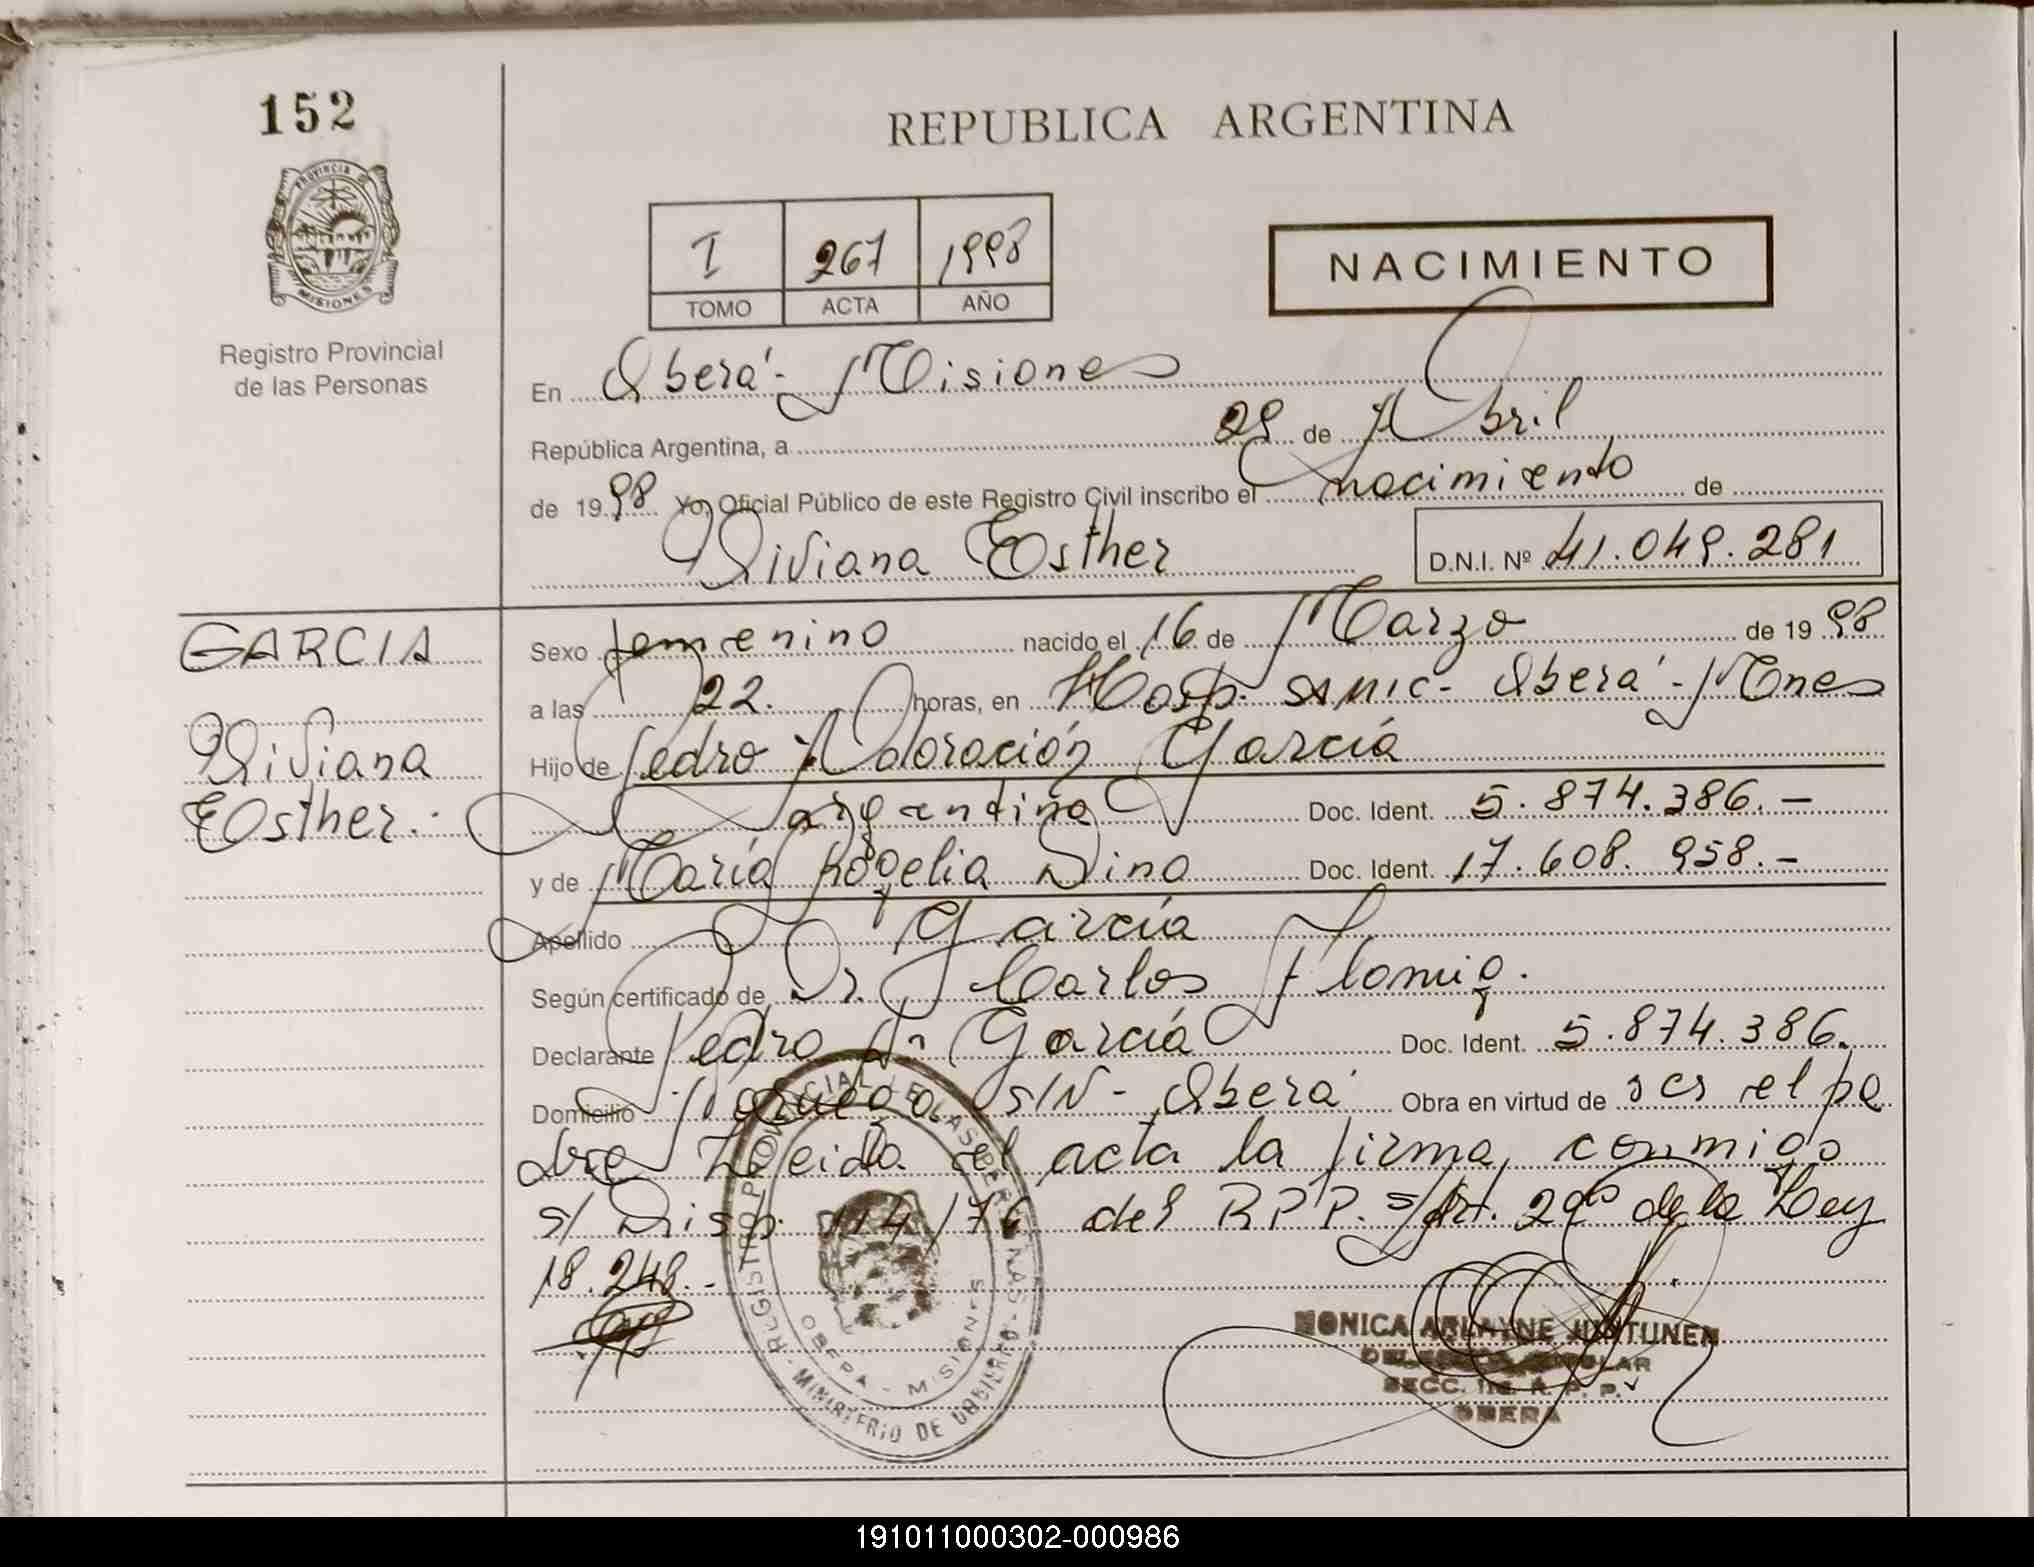 152
PROVINCIA DE
MISIONES
Registro Provincial
de las Personas
REPUBLICA ARGENTINA
I 267 1998
TOMO ACTA AÑO
NACIMIENTO
En Oberá - Misiones
República Argentina, a 29 de Abril
de 1998 Yo, Oficial Público de este Registro Civil inscribo el nacimiento de
Viviana Esther D.N.I. Nº 41.049.281
GARCIA
Viviana
Esther.-
Sexo femenino nacido el 16 de Marzo de 1998
a las 22. horas, en Hosp. SAMIC - Oberá - Mnes
Hijo de Pedro Adoración García
argentina Doc. Ident. 5.874.386.-
y de María Rogelia Dino Doc. Ident. 17.608.958.-
Apellido García
Según certificado de Dr. Carlos
Declarante Pedro A. García Doc. Ident. 5.874.386.
Domicilio S/N - Oberá Obra en virtud de ser el pa
dre Leída el acta la firma conmigo
s/ Disp. 114/76 del RPP. s/Art. 29º de la Ley
18.248.-
REGISTRO PROVINCIAL DE LAS PERSONAS
OBERA - MISIONES
MINISTERIO DE GOBIERNO
MONICA ARLAYNE JUNTUNEN
TITULAR
SECC. R. P. P.
OBERA
191011000302-000986